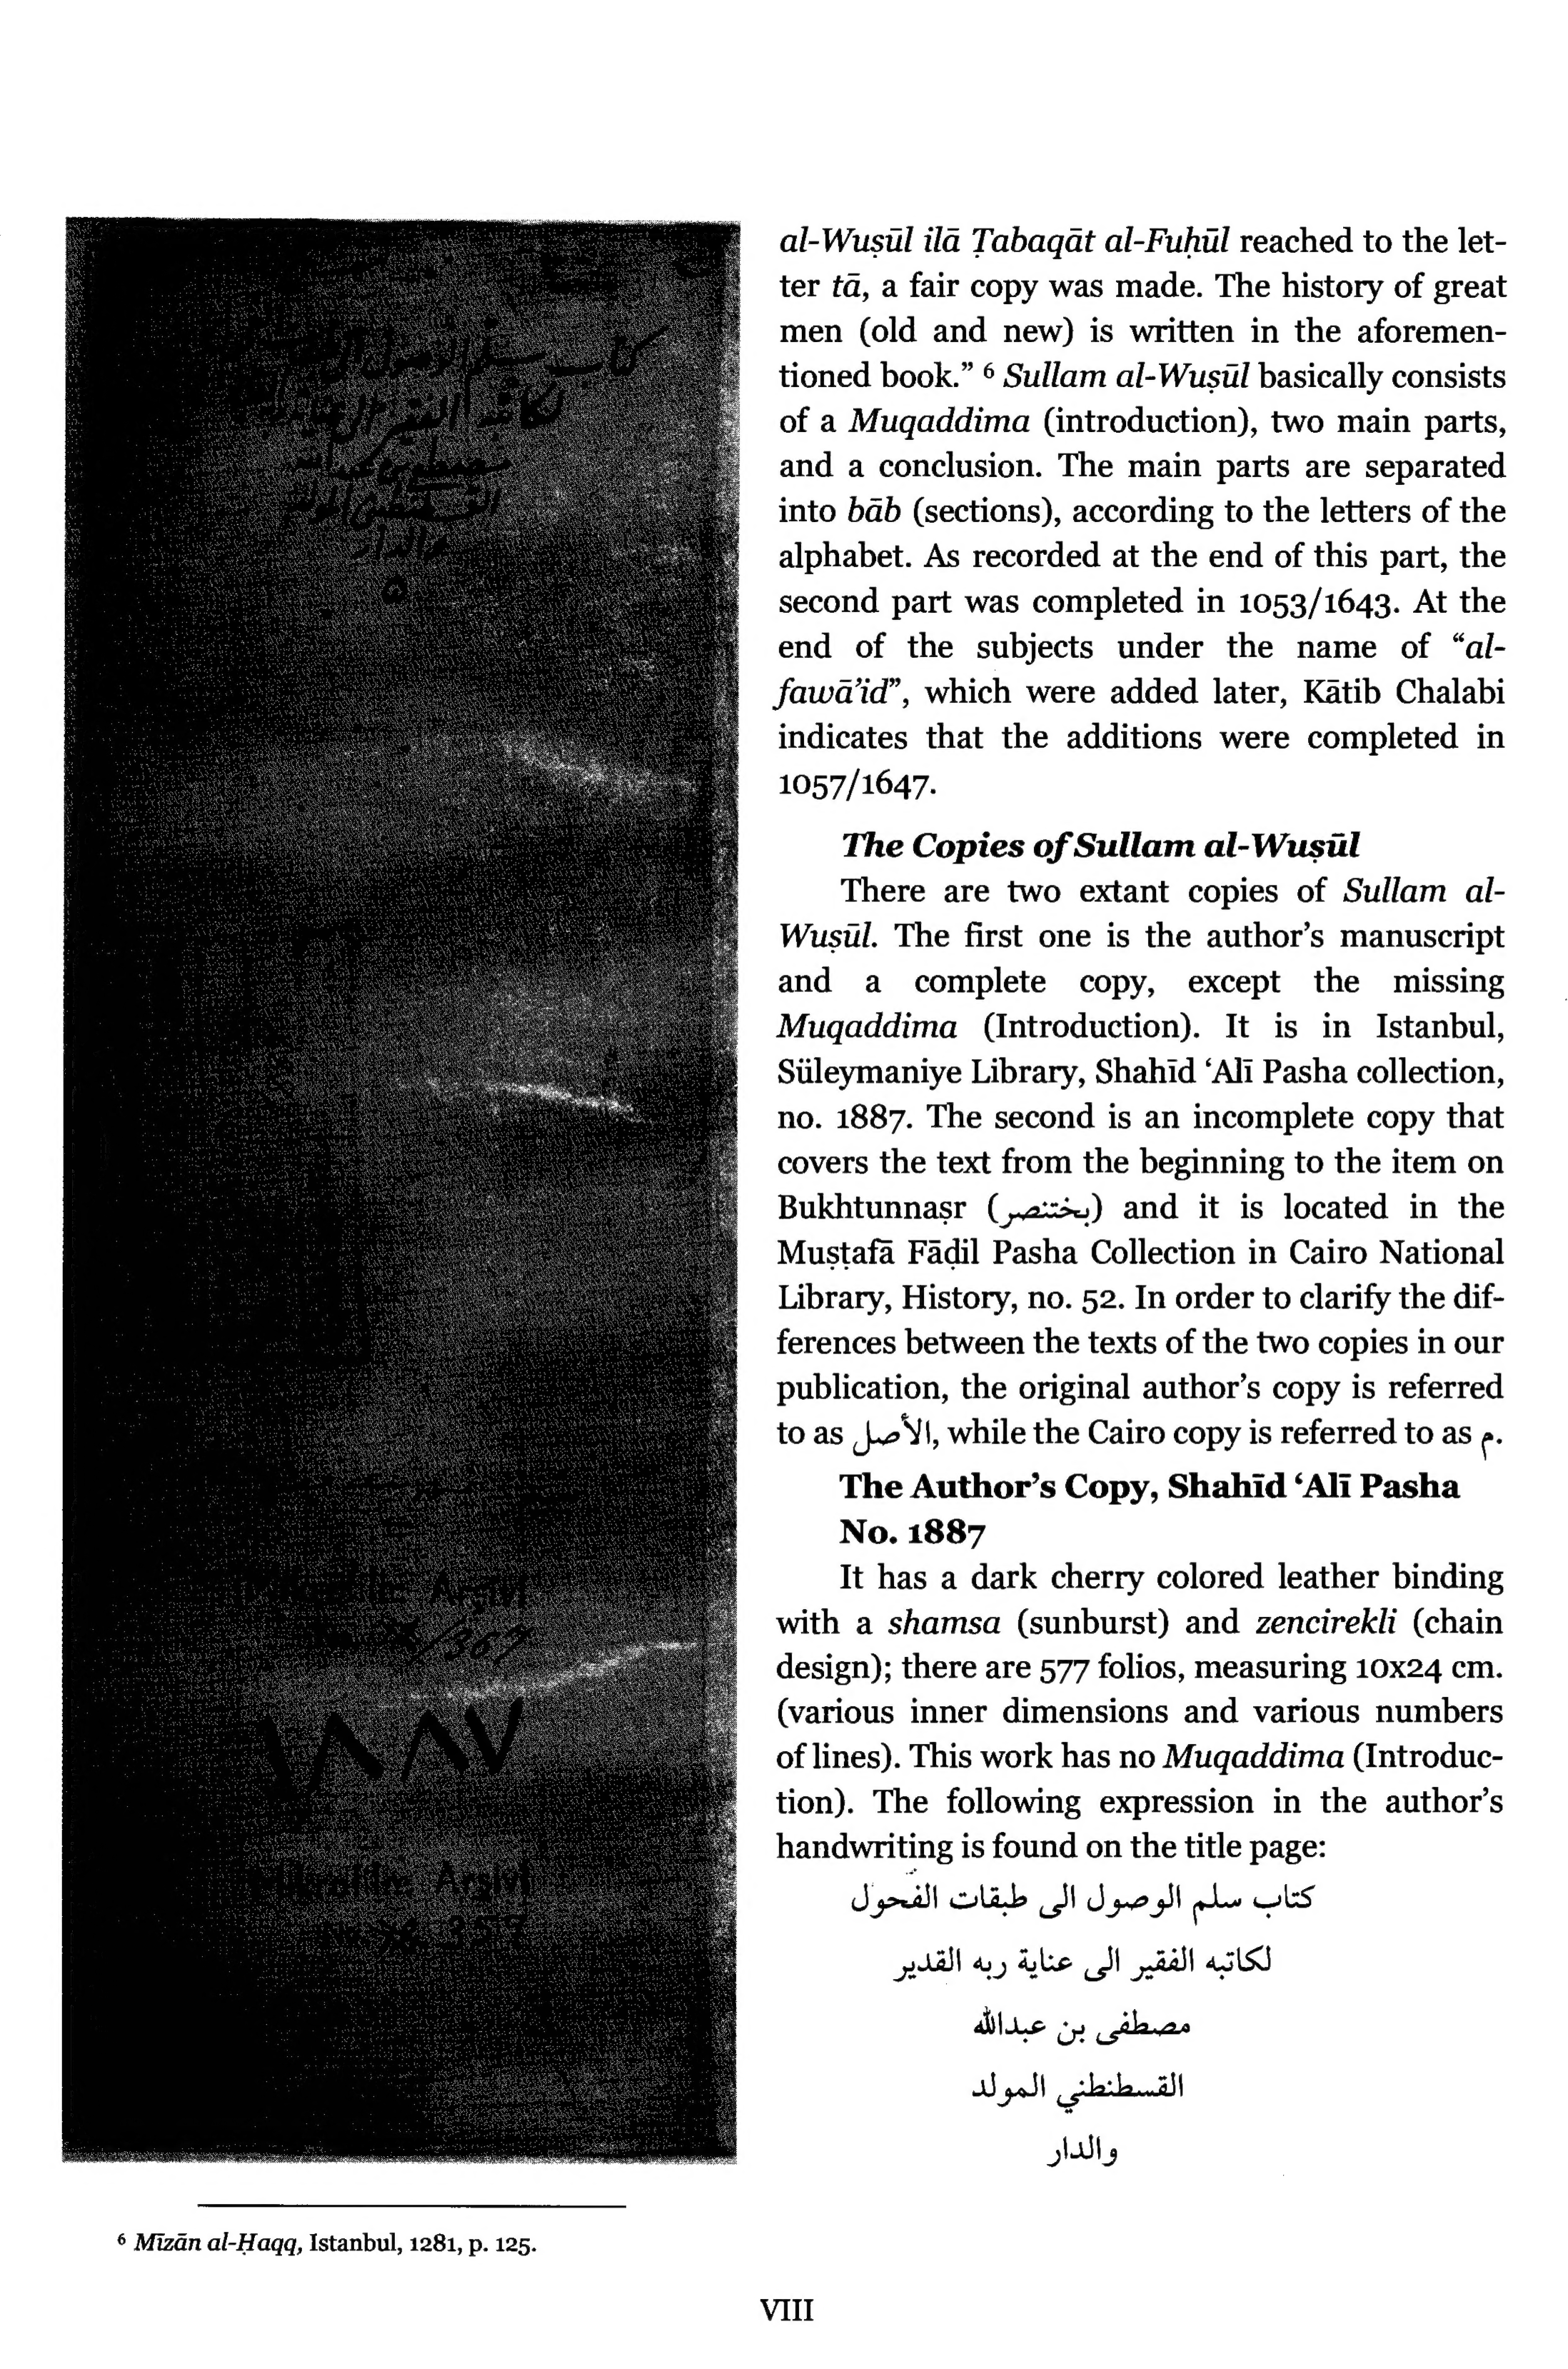 كتاب سلم الوصول الى
لكاتبه الفقير الى عناية ربه
مصطفى بن عبدالله
القسطنطني المولد
والدار
Mikrofilm Arşivi
No. 357
١٨٨٧
Mikrofilm Arşivi
No. 357
al-Wuṣūl ilā Ṭabaqāt al-Fuḥūl reached to the let-
ter tā, a fair copy was made. The history of great
men (old and new) is written in the aforemen-
tioned book.” ⁶ Sullam al-Wuṣūl basically consists
of a Muqaddima (introduction), two main parts,
and a conclusion. The main parts are separated
into bāb (sections), according to the letters of the
alphabet. As recorded at the end of this part, the
second part was completed in 1053/1643. At the
end of the subjects under the name of “al-
fawā’id”, which were added later, Kātib Chalabi
indicates that the additions were completed in
1057/1647.
The Copies of Sullam al-Wuṣūl
There are two extant copies of Sullam al-
Wuṣūl. The first one is the author’s manuscript
and a complete copy, except the missing
Muqaddima (Introduction). It is in Istanbul,
Süleymaniye Library, Shahīd ‘Alī Pasha collection,
no. 1887. The second is an incomplete copy that
covers the text from the beginning to the item on
Bukhtunnaṣr (بختنصر) and it is located in the
Muṣṭafā Fāḍil Pasha Collection in Cairo National
Library, History, no. 52. In order to clarify the dif-
ferences between the texts of the two copies in our
publication, the original author’s copy is referred
to as الأصل, while the Cairo copy is referred to as م.
The Author’s Copy, Shahīd ‘Alī Pasha
No. 1887
It has a dark cherry colored leather binding
with a shamsa (sunburst) and zencirekli (chain
design); there are 577 folios, measuring 10x24 cm.
(various inner dimensions and various numbers
of lines). This work has no Muqaddima (Introduc-
tion). The following expression in the author’s
handwriting is found on the title page:
كتاب سلم الوصول الى طبقات الفحول
لكاتبه الفقير الى عناية ربه القدير
مصطفى بن عبدالله
القسطنطني المولد
والدار
⁶ Mīzān al-Ḥaqq, Istanbul, 1281, p. 125.
VIII